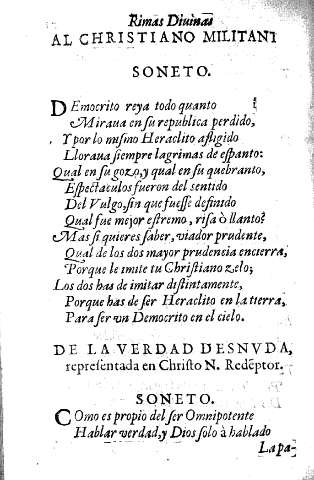 Rimas Diuinas
AL CHRISTIANO MILITANT
SONETO.
DEmocrito reya todo quanto
Miraua en su republica perdido,
Y por lo mismo Heraclito afligido
Lloraua siempre lagrimas de espanto:
Qual en su gozo, y qual en su quebranto,
Espectaculos fueron del sentido
Del Vulgo, sin que fuesse definido
Qual fue mejor estremo, risa ò llanto?
Mas si quieres saber, viador prudente,
Qual de los dos mayor prudencia encierra,
Porque le imite tu Christiano zelo;
Los dos has de imitar distintamente,
Porque has de ser Heraclito en la tierra,
Para ser vn Democrito en el cielo.
DE LA VERDAD DESNVDA,
representada en Christo N. Redẽptor.
SONETO.
COmo es propio del ser Omnipotente
Hablar verdad, y Dios solo à hablado
La pa-